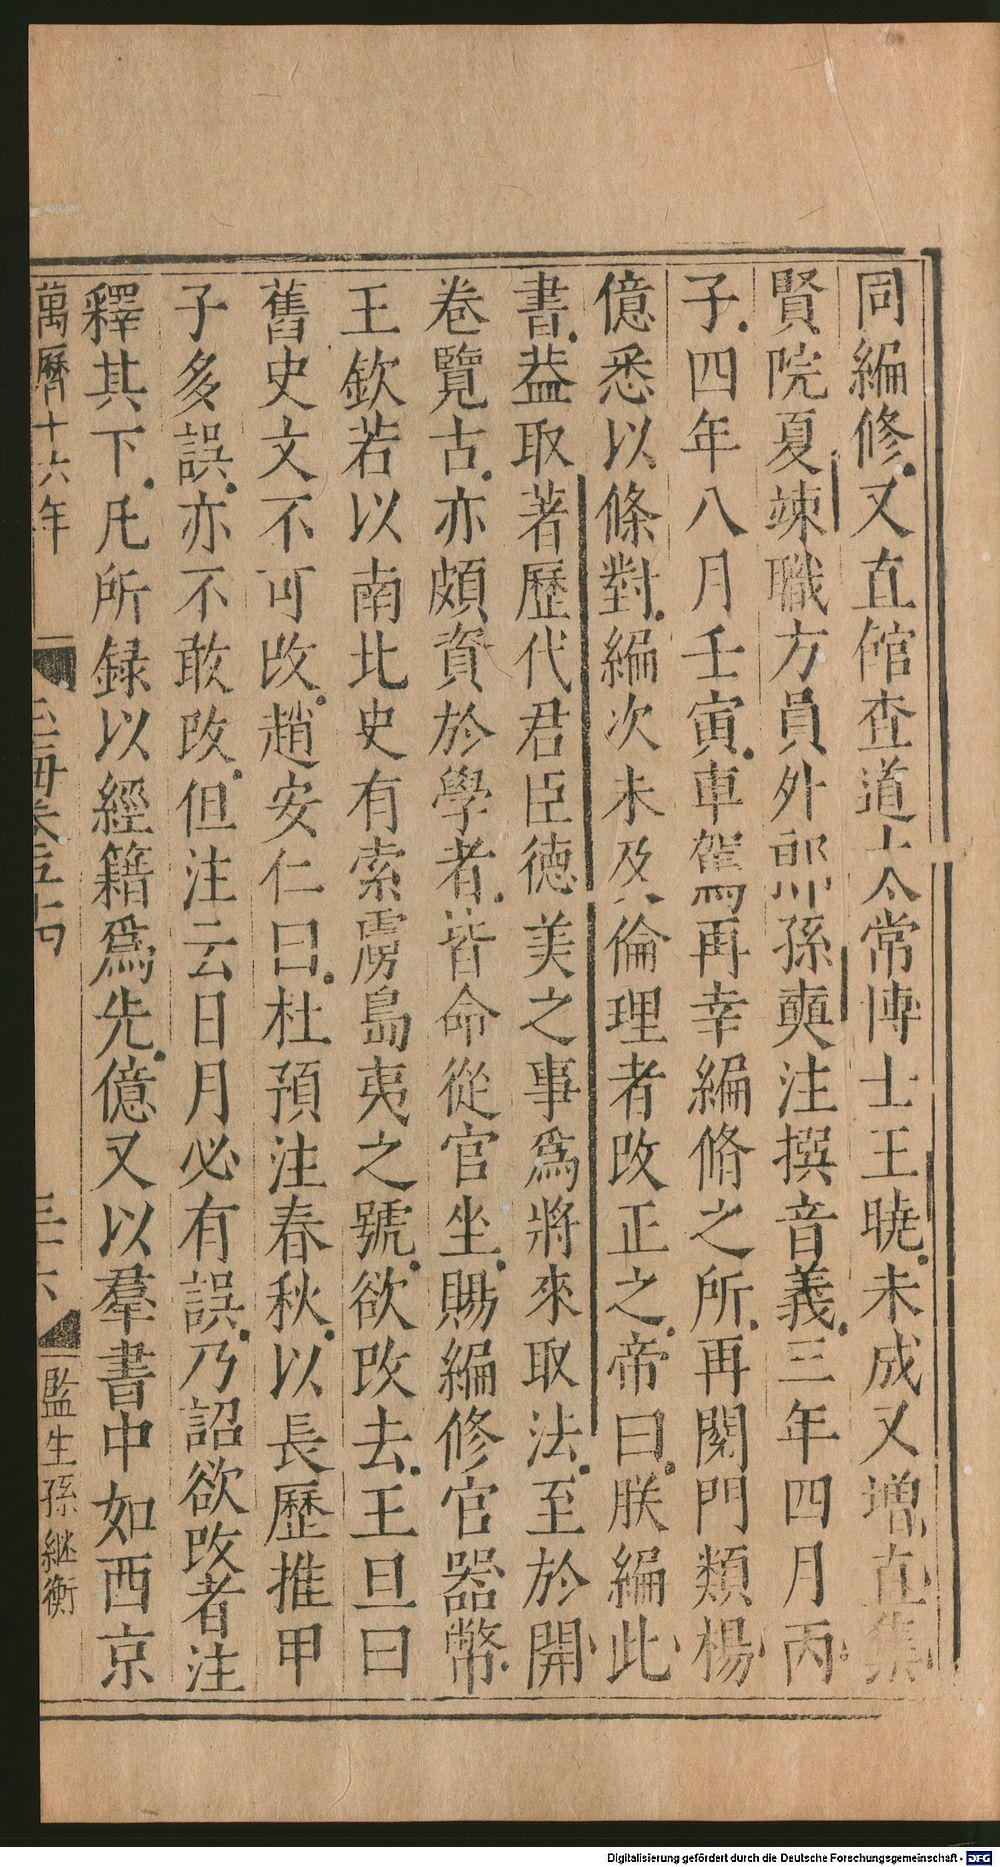 同編修又直館査道太常博士王曉未成又增直集
賢院夏竦職方員外郎孫奭注撰音義三年四月丙
子四年八月壬寅車駕再幸編脩之所再閱門類楊
億悉以條對編次未及倫理者改正之帝曰朕編此
書葢取著歷代君臣德美之事爲將來取法至於開
卷覽古亦頗資於學者皆命從官坐賜編修官器幣
王欽若以南北史有索虜島夷之號欲改去王旦曰
舊史文不可改趙安仁曰杜預注春秋以長歷推甲
子多誤亦不敢改但注云日月必有誤乃詔欲改者注
釋其下凡所録以經籍爲先億又以羣書中如西京
萬曆十六年
玉海卷五十四
三十六
監生孫継衡
Digitalisierung gefördert durch die Deutsche Forschungsgemeinschaft - DFG